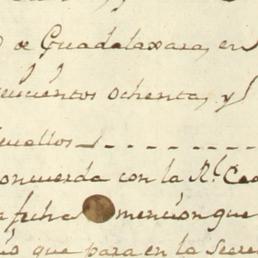 de Guadalaxara, en
cientos ochenta, y
concuerda con la Rl. Ce
fecha mencion que
que para en la Secre